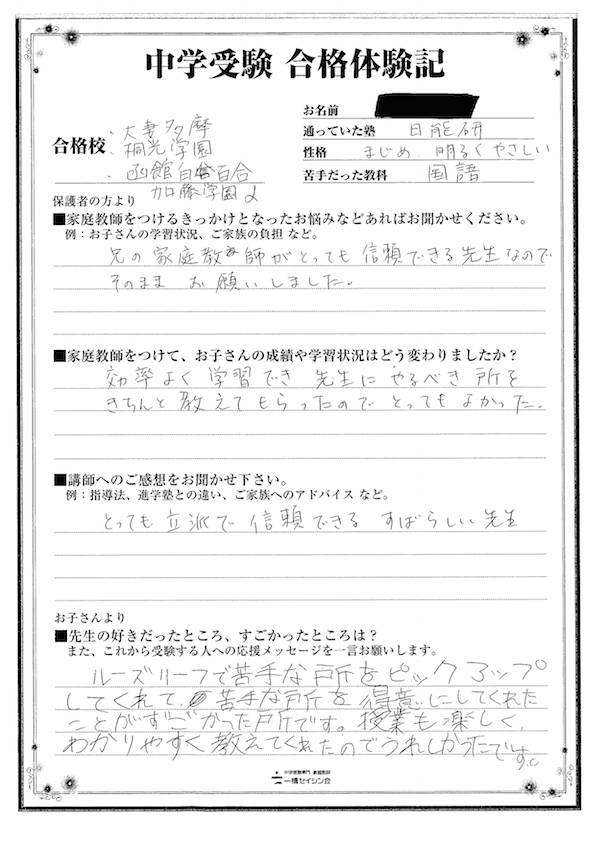 中学受験 合格体験記
お名前
合格校
・大妻多摩
・桐光学園
・函館白百合
加藤学園
通っていた塾 日能研
性格 まじめ 明るくやさしい
苦手だった教科 国語
保護者の方より
■家庭教師をつけるきっかけとなったお悩みなどあればお聞かせください。
例：お子さんの学習状況、ご家族の負担 など。
兄の家庭教師がとっても信頼できる先生なので
そのまま お願いしました。
■家庭教師をつけて、お子さんの成績や学習状況はどう変わりましたか？
効率よく 学習でき 先生に やるべき 所を
きちんと 教えてもらったので とってもよかった。
■講師へのご感想をお聞かせ下さい。
例：指導法、進学塾との違い、ご家族へのアドバイス など。
とっても 立派で 信頼できる すばらしい先生
お子さんより
■先生の好きだったところ、すごかったところは？
また、これから受験する人への応援メッセージを一言お願いします。
ルーズリーフで苦手な所をピックアップ
してくれて、苦手な所を得意にしてくれた
ことがすごかった所です。授業も楽しく、
わかりやすく教えてくれたのでうれしかったです。
中学受験専門 家庭教師
一橋セイシン会